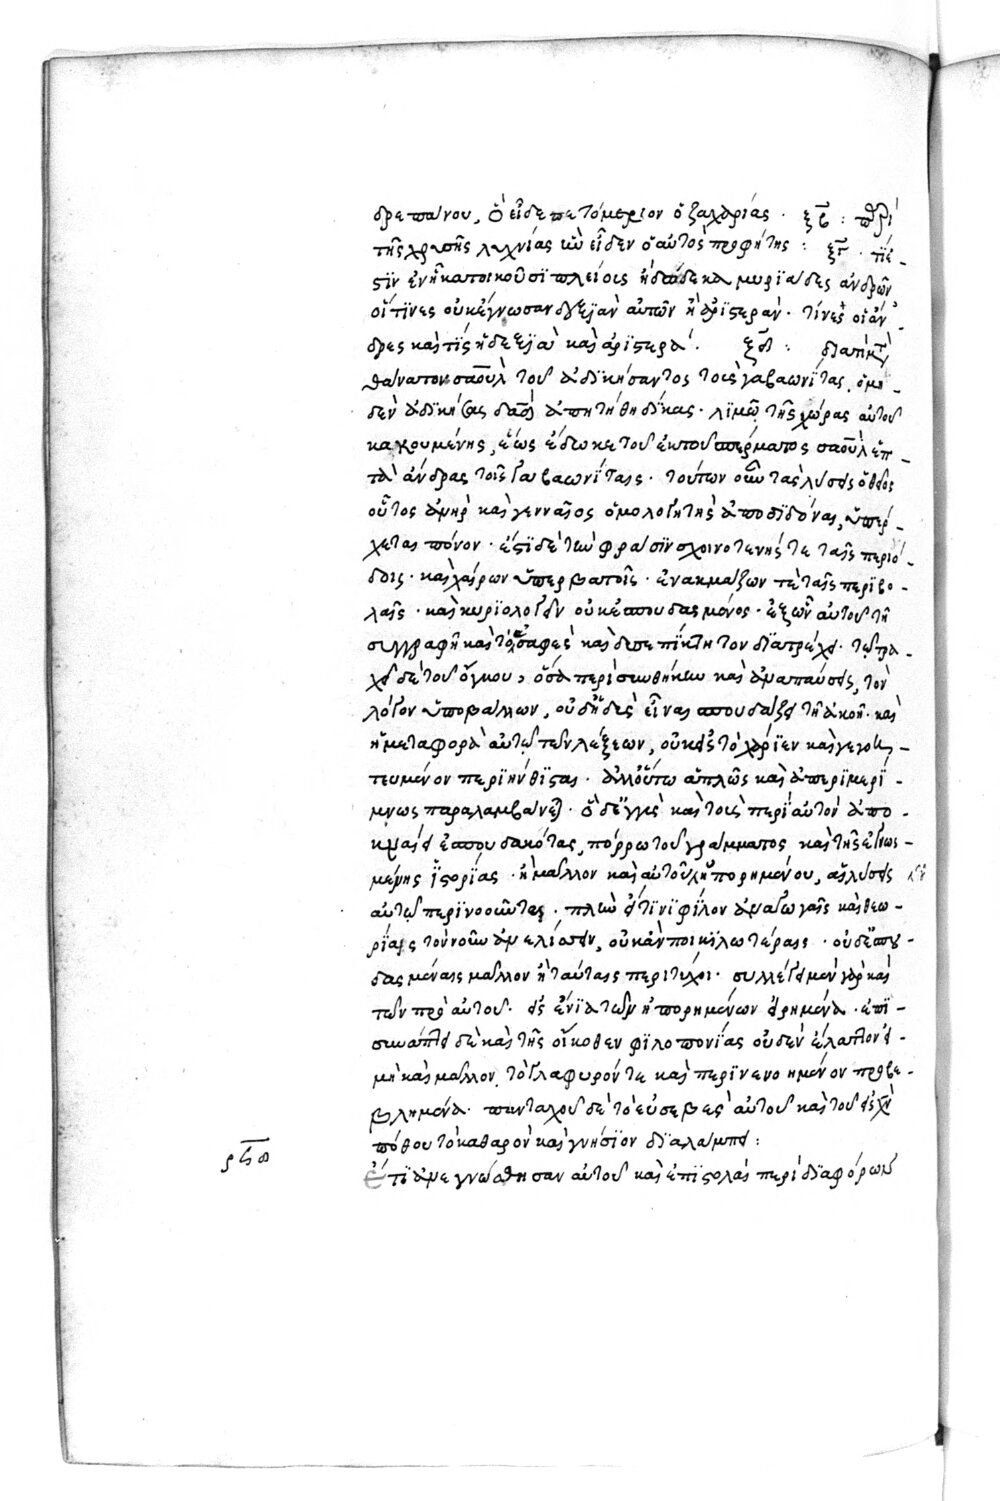 δρεπάνου, ὃ εἶδε πετόμενον ὁ ζαχαρίας · ξβ : περὶ
τῆς χρυσῆς λυχνίας ἣν εἶδεν ὁ αὐτὸς προφήτης : ξγ · τίς
ἐν ᾗ κατοικοῦσι πλείους ἢ δώδεκα μυριάδες ἀνδρῶν
οἵτινες οὐκ ἔγνωσαν δεξιὰν αὐτῶν ἢ ἀριστεράν · τίνες οἱ ἄν -
δρες καὶ τίς ἡ δεξιὰ καὶ ἀριστερά · ξδ : διατί μετὰ
θάνατον σαοὺλ τοῦ ἀδικήσαντος τοὺς γαβαωνίτας, ὁ μη -
δὲν ἀδικήσας δαδ ἀπῃτήθη δίκας · λιμῷ τῆς χώρας αὐτοῦ
κακουμένης, ἕως ἔδωκε τοῦ ἐκ τοῦ σπέρματος σαοὺλ ἑπ -
τὰ ἄνδρας τοῖς γαβαωνίταις · τούτων οὖν τὰς λύσεις ὁ θεῖος
οὗτος ἀνὴρ καὶ γενναῖος ὁμολογητὴς ἀποδιδόναι, ὑπέρ -
χεται πόνον · ἔστι δὲ τὴν φράσιν σχοινοτενής τε ταῖς περιό -
δοις · καὶ χαίρων ὑπερβατοῖς · ἐνακμάζων τε ταῖς περιβο -
λαῖς · καὶ κυριολογεῖν οὐκ ἐσπουδασμένος · ἐξ ὧν αὐτοῦ τῇ
συγγραφῇ καὶ τὸ ἀσαφὲς καὶ δυσεπίκτητον διατρέχει · τῷ τρα -
χεῖ δὲ τοῦ ὄγκου, ὅσα περὶ συνθήκην καὶ ἀναπαύσεις, τὸν
λόγον ὑποβάλλων, οὐδ' ἡδὺς εἶναι σπουδάζει τῇ ἀκοῇ · καὶ
ἡ μεταφορὰ αὐτῷ τῶν λέξεων, οὐκ εἰς τὸ χαρίεν καὶ γεγοη -
τευμένον περιήνθισται · ἀλλ' οὕτω ἁπλῶς καὶ ἀπεριμερί -
μνως παραλαμβάνεται · ὃ δέ γε καὶ τοὺς περὶ αὐτὸν ἀπο -
κναίει ἐσπουδακότας, πόρρω τοῦ γράμματος καὶ τῆς ἐγνωσ -
μένης ἱστορίας · ἢ μᾶλλον καὶ αὐτοῦ ἠπορημένου, αἱ λύσεις
αὐτῷ περινοοῦνται · πλὴν εἴ τινι φίλον ἀναγωγαῖς καὶ θεω -
ρίαις τὸν νοῦν ἀνελίσσειν, οὐκ ἂν ποικιλωτέραις · οὐδ' ἐσπου -
δασμέναις μᾶλλον ἢ ταύταις περιτύχοι · συλλέγει μὲν γὰρ καὶ
τῶν πρὸ αὐτοῦ · εἰς ἔνια τῶν ἠπορημένων εἰρημένα · ἐπι -
συνάπτει δὲ καὶ τῆς οἴκοθεν φιλοπονίας οὐδὲν ἔλαττον εἰ
μὴ καὶ μᾶλλον, τὸ γλαφυρόν τε καὶ περινενοημένον προβε -
βλημένα · πανταχοῦ δὲ τὸ εὐσεβὲς αὐτοῦ καὶ τοῦ εἰς χν
πόθου τὸ καθαρὸν καὶ γνήσιον διαλάμπει :
ρϟβ
ἔτι ἀνεγνώσθησαν αὐτοῦ καὶ ἐπιστολαὶ περὶ διαφόρων